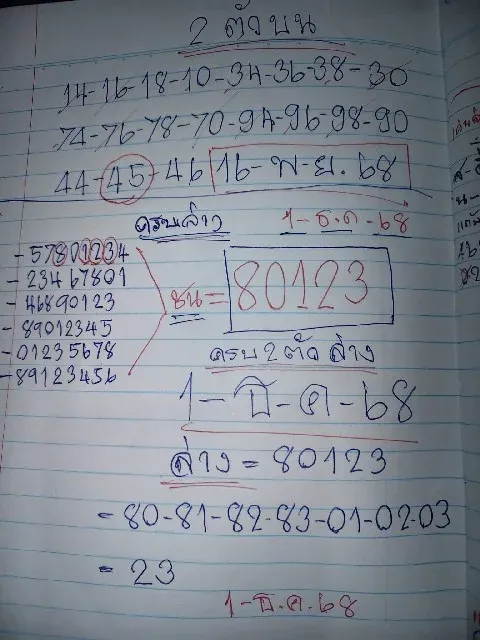 2 ตัวบน
14-16-18-10-34-36-38-30
74-76-78-70-94-96-98-90
44-45-46 16-พ.ย.68
ครบล่าง 1-ธ.ค-68
-57801234
-23467801
-46890123
-89012345
-01235678
-89123456
ชน=80123
ครบ 2 ตัว ล่าง
1-ธ-ค-68
ล่าง = 80123
=80-81-82-83-01-02-03
= 23
1-ธ.ค.68